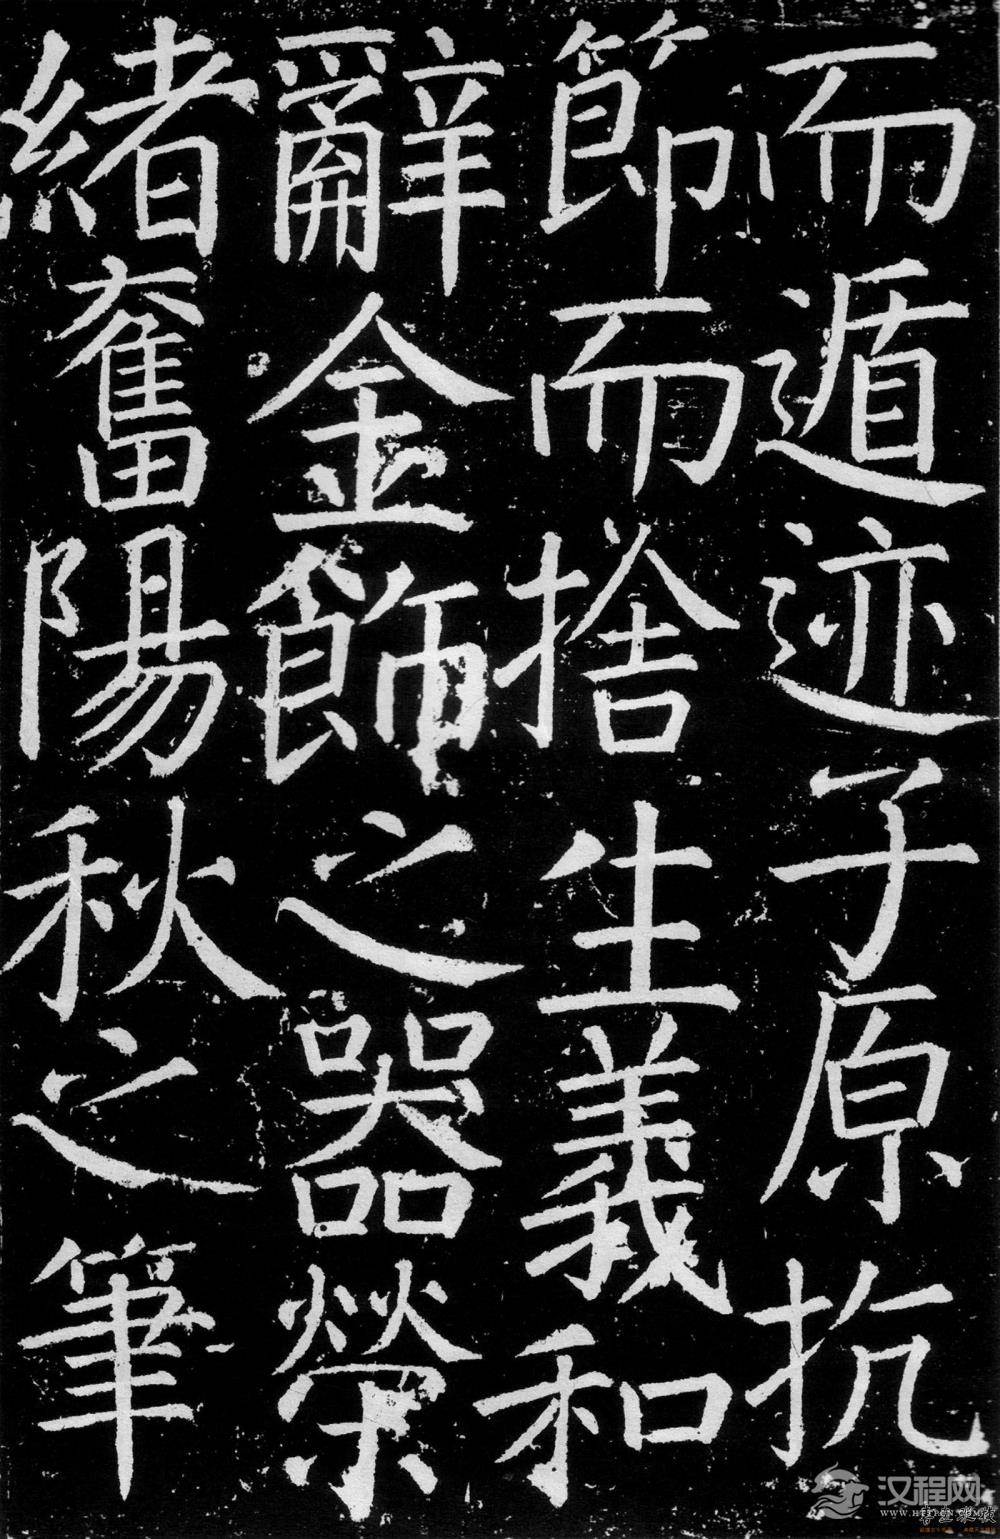 而遁迹子原抗
節而捨生義和
辭金飾之器榮
緒奮陽秋之筆
汉程网